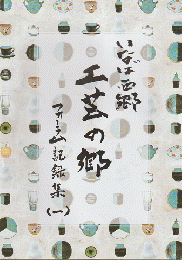 いなば西郷
工芸の郷
フォーラム記録集
(一)